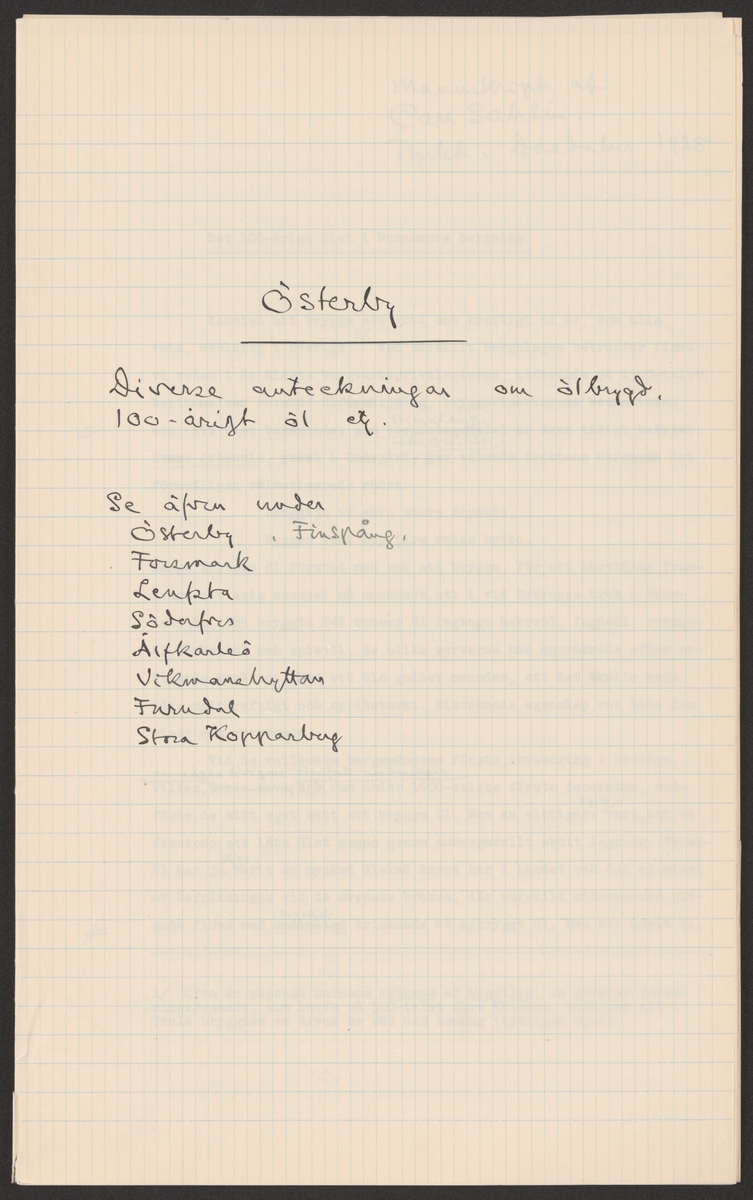 Österby
Diverse anteckningar om ölbrygd.
100-årigt öl etc.
Se äfven under
Österby, Finspång.
Forsmark
Leufsta
Söderfors
Älfkarleö
Vikmanshyttan
Furudal
Stora Kopparberg